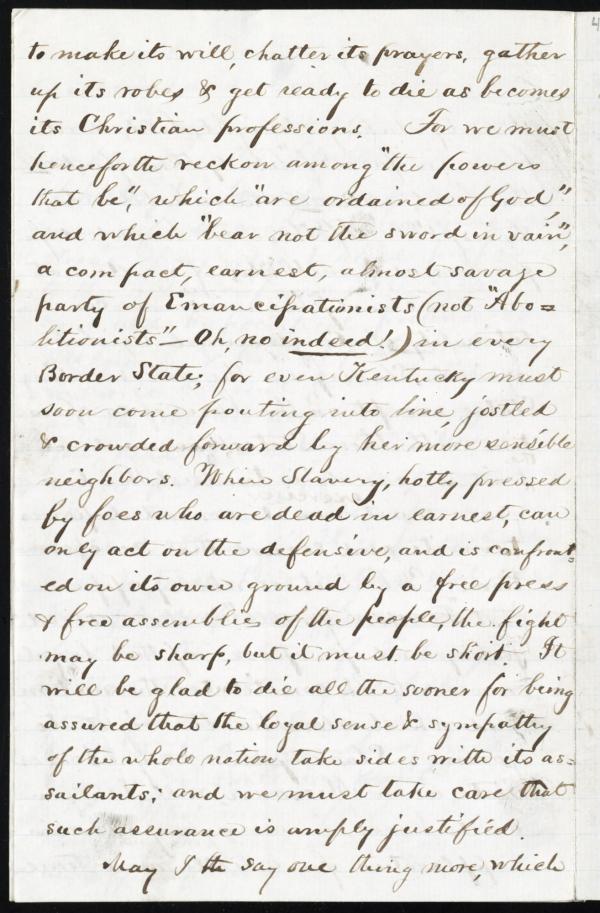 to make its will, chatter its prayers, gather
up its robes & get ready to die as becomes
its Christian professions. For we must
henceforth reckon among "the powers
that be", which "are ordained of God",
and which "bear not the sword in vain",
a compact, earnest, almost savage
party of Emancipationists (not "Abo=
litionists" – Oh, no indeed!) in every
Border State; for even Kentucky must
soon come pouting into line, jostled
& crowded forward by her more sensible
neighbors. When Slavery, hotly pressed
by foes who are dead in earnest, can
only act on the defensive, and is confront=
ed on its own ground by a free press
& free assemblies of the people, the fight
may be sharp, but it must be short. It
will be glad to die all the sooner for being
assured that the loyal sense & sympathy
of the whole nation take sides with its as=
sailants; and we must take care that
such assurance is amply justified.
May I say one thing more, which